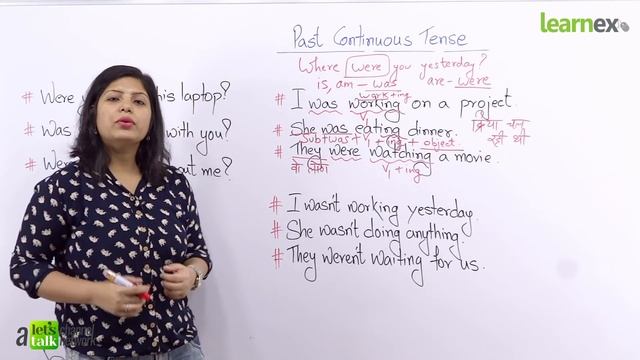 learnex
Past Continuous Tense
Where were you yesterday?
is, am - was are - were
work+ing
# I was working on a project.
V1
# She was eating dinner. क्रिया चल
रही थी
Sub+was+V1+ing+object.
# They were watching a movie.
V1+ing
# I wasn't working yesterday.
# She wasn't doing anything.
# They weren't waiting for us.
# Were his laptop?
# Was with you?
# Wer me?
a let's talk channel network